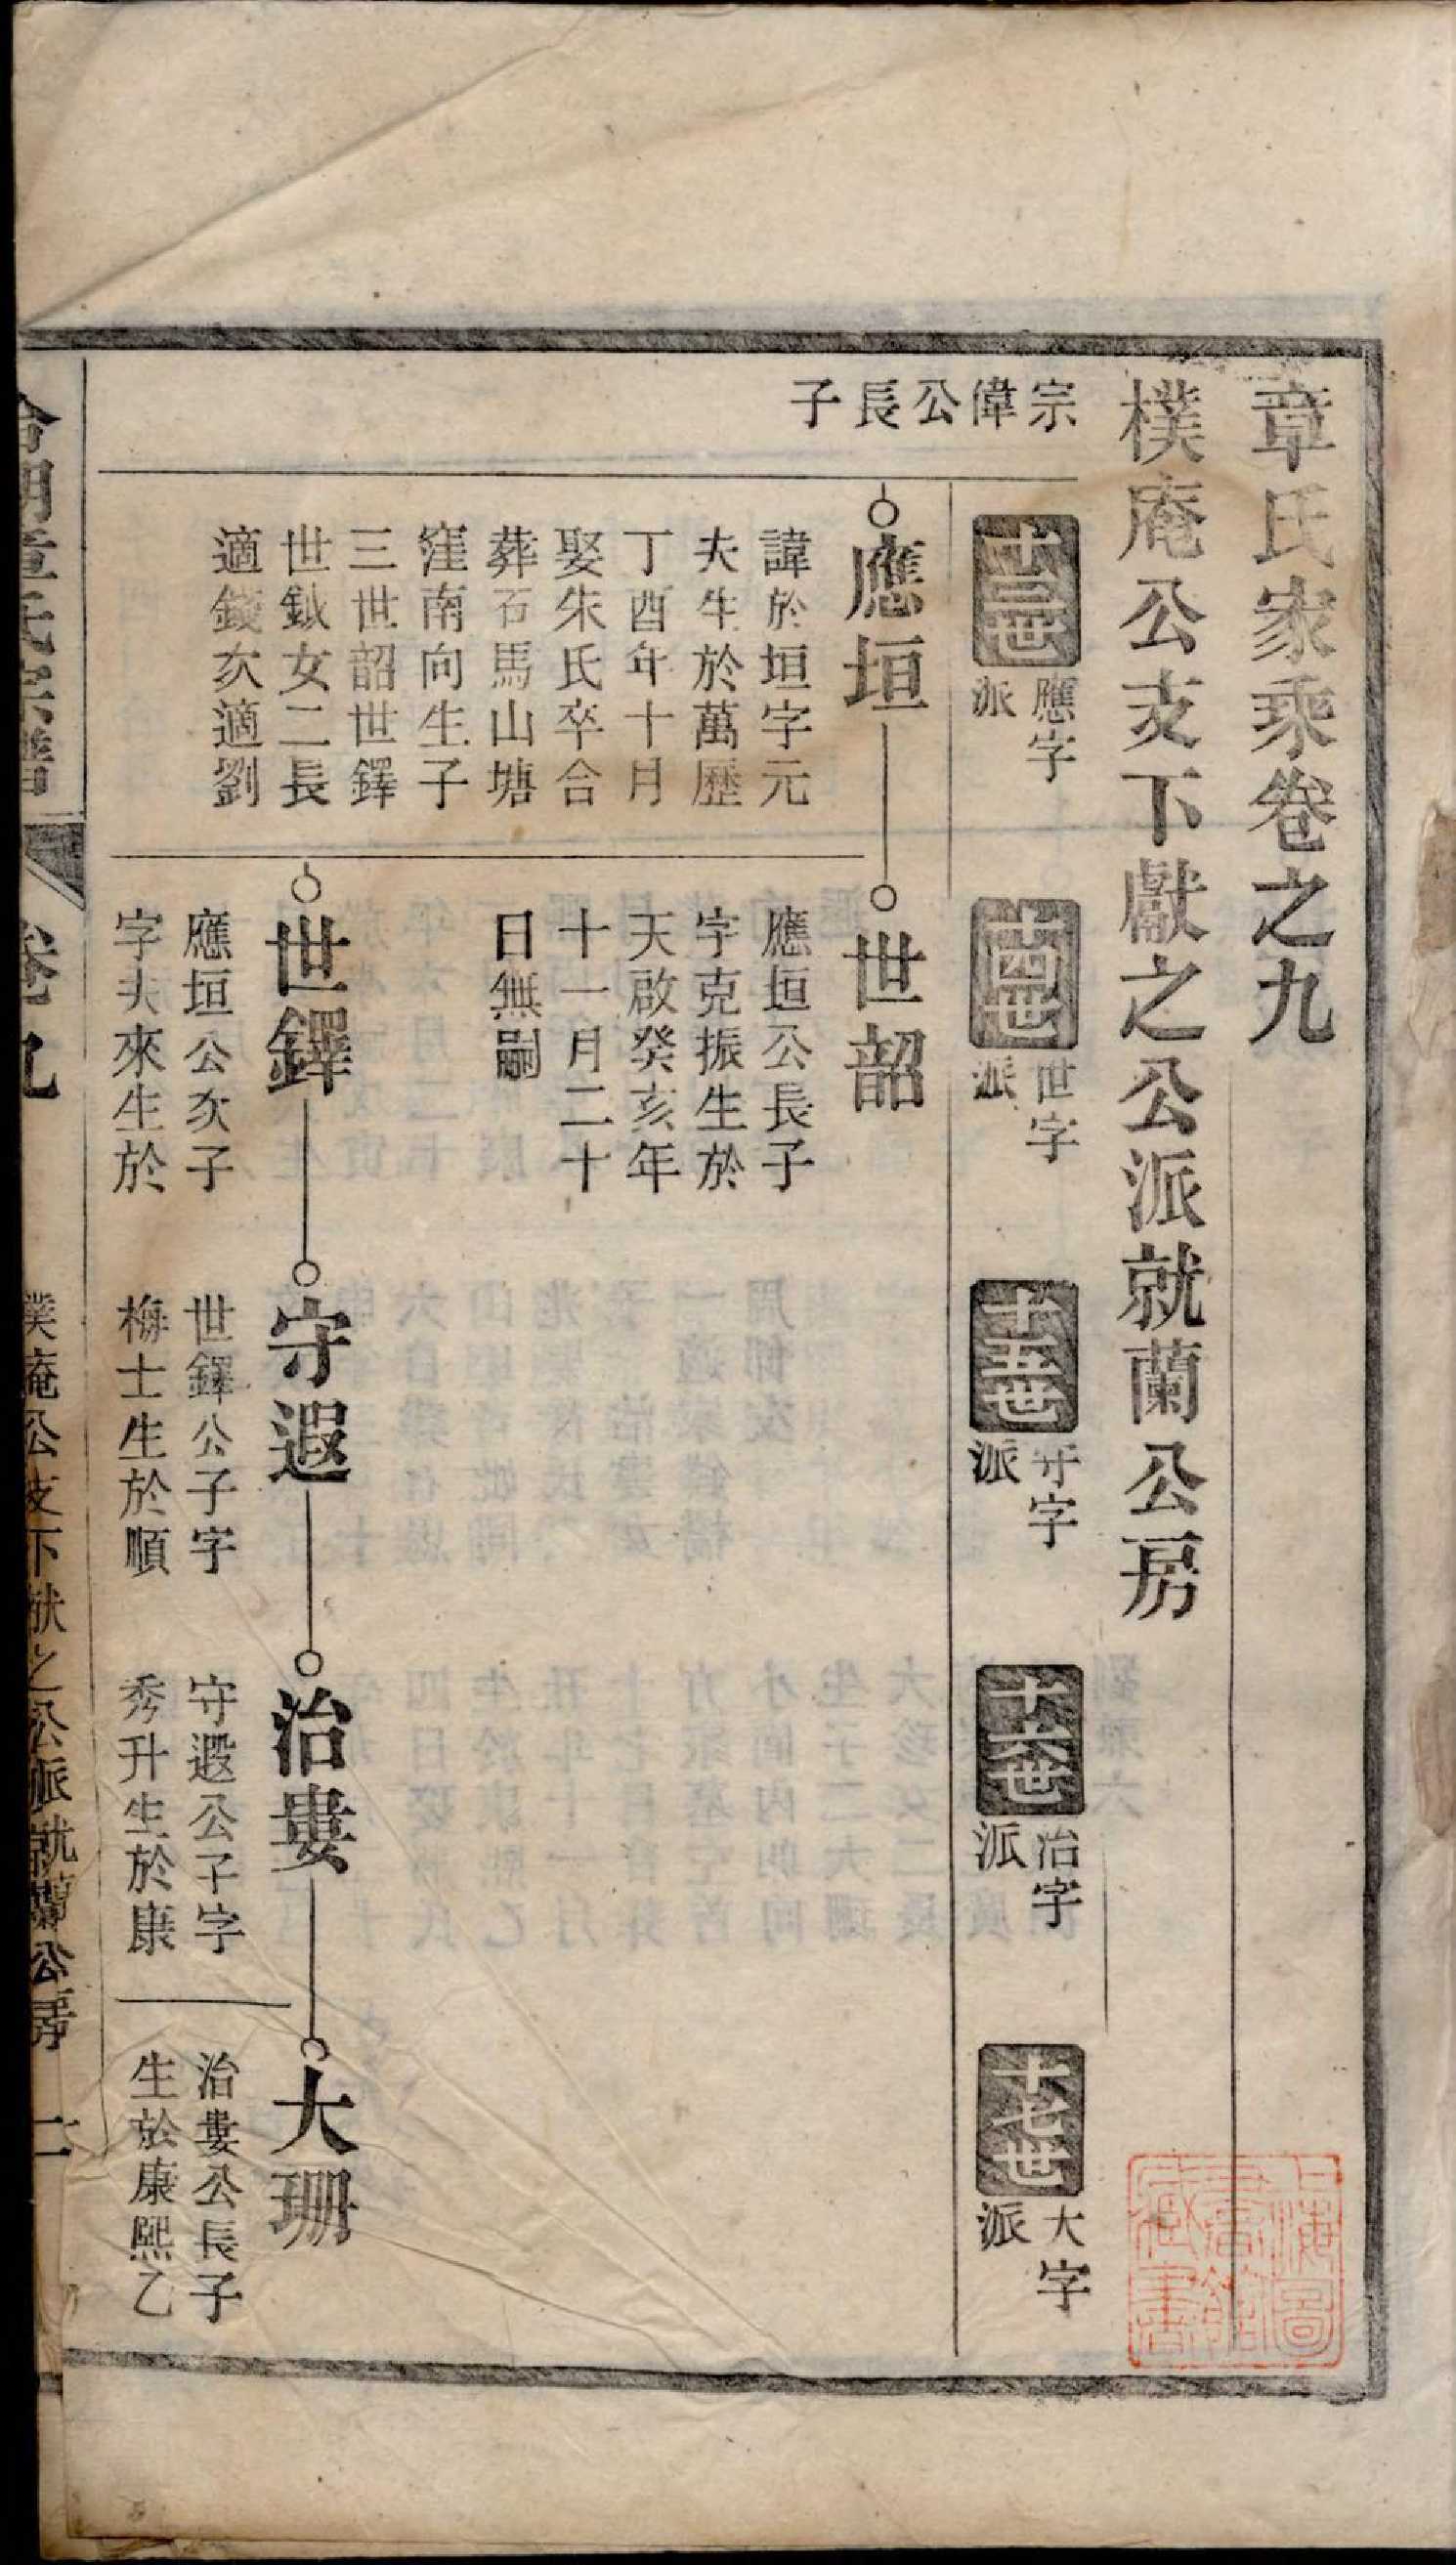 章氏家乘卷之九
樸庵公支下獻之公派就蘭公房
十三世
應字
派
十四世
世字
派
十五世
守字
派
十六世
治字
派
十七世
大字
派
宗偉公長子
應垣
諱於垣字元
夫生於萬歷
丁酉年十月
娶朱氏卒合
葬石馬山塘
窪南向生子
三世韶世鐸
世鉞女二長
適錢次適劉
世韶
應垣公長子
字克振生於
天啟癸亥年
十一月二十
日無嗣
世鐸
應垣公次子
字夫來生於
守遐
世鐸公子字
梅士生於順
治婁
守遐公子字
秀升生於康
大珊
治婁公長子
生於康熙乙
章氏宗譜
卷九
樸庵公支下献之公派就蘭公房
上海圖書館藏書